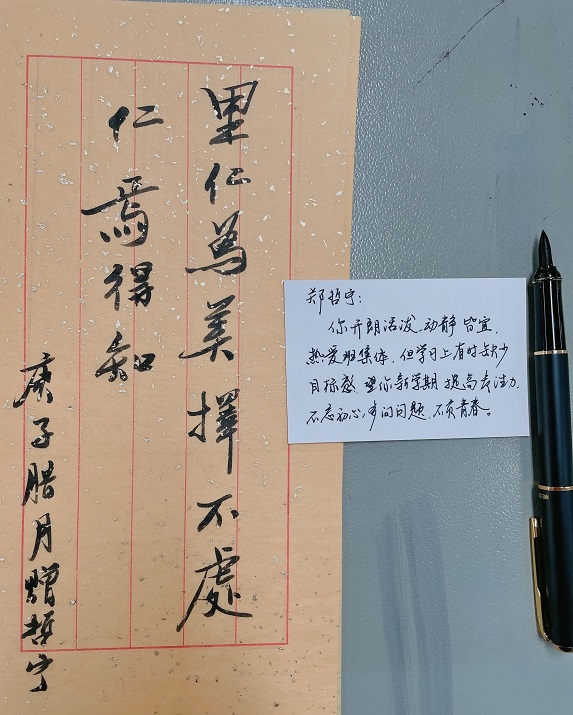 里仁為美擇不處
仁焉得知
庚子腊月赠哲宁
郑哲宁：
你开朗活泼，动静皆宜，
热爱班集体，但学习上有时缺少
目标感，望你新学期提高专注力，
不忘初心，多问问题，不负青春。